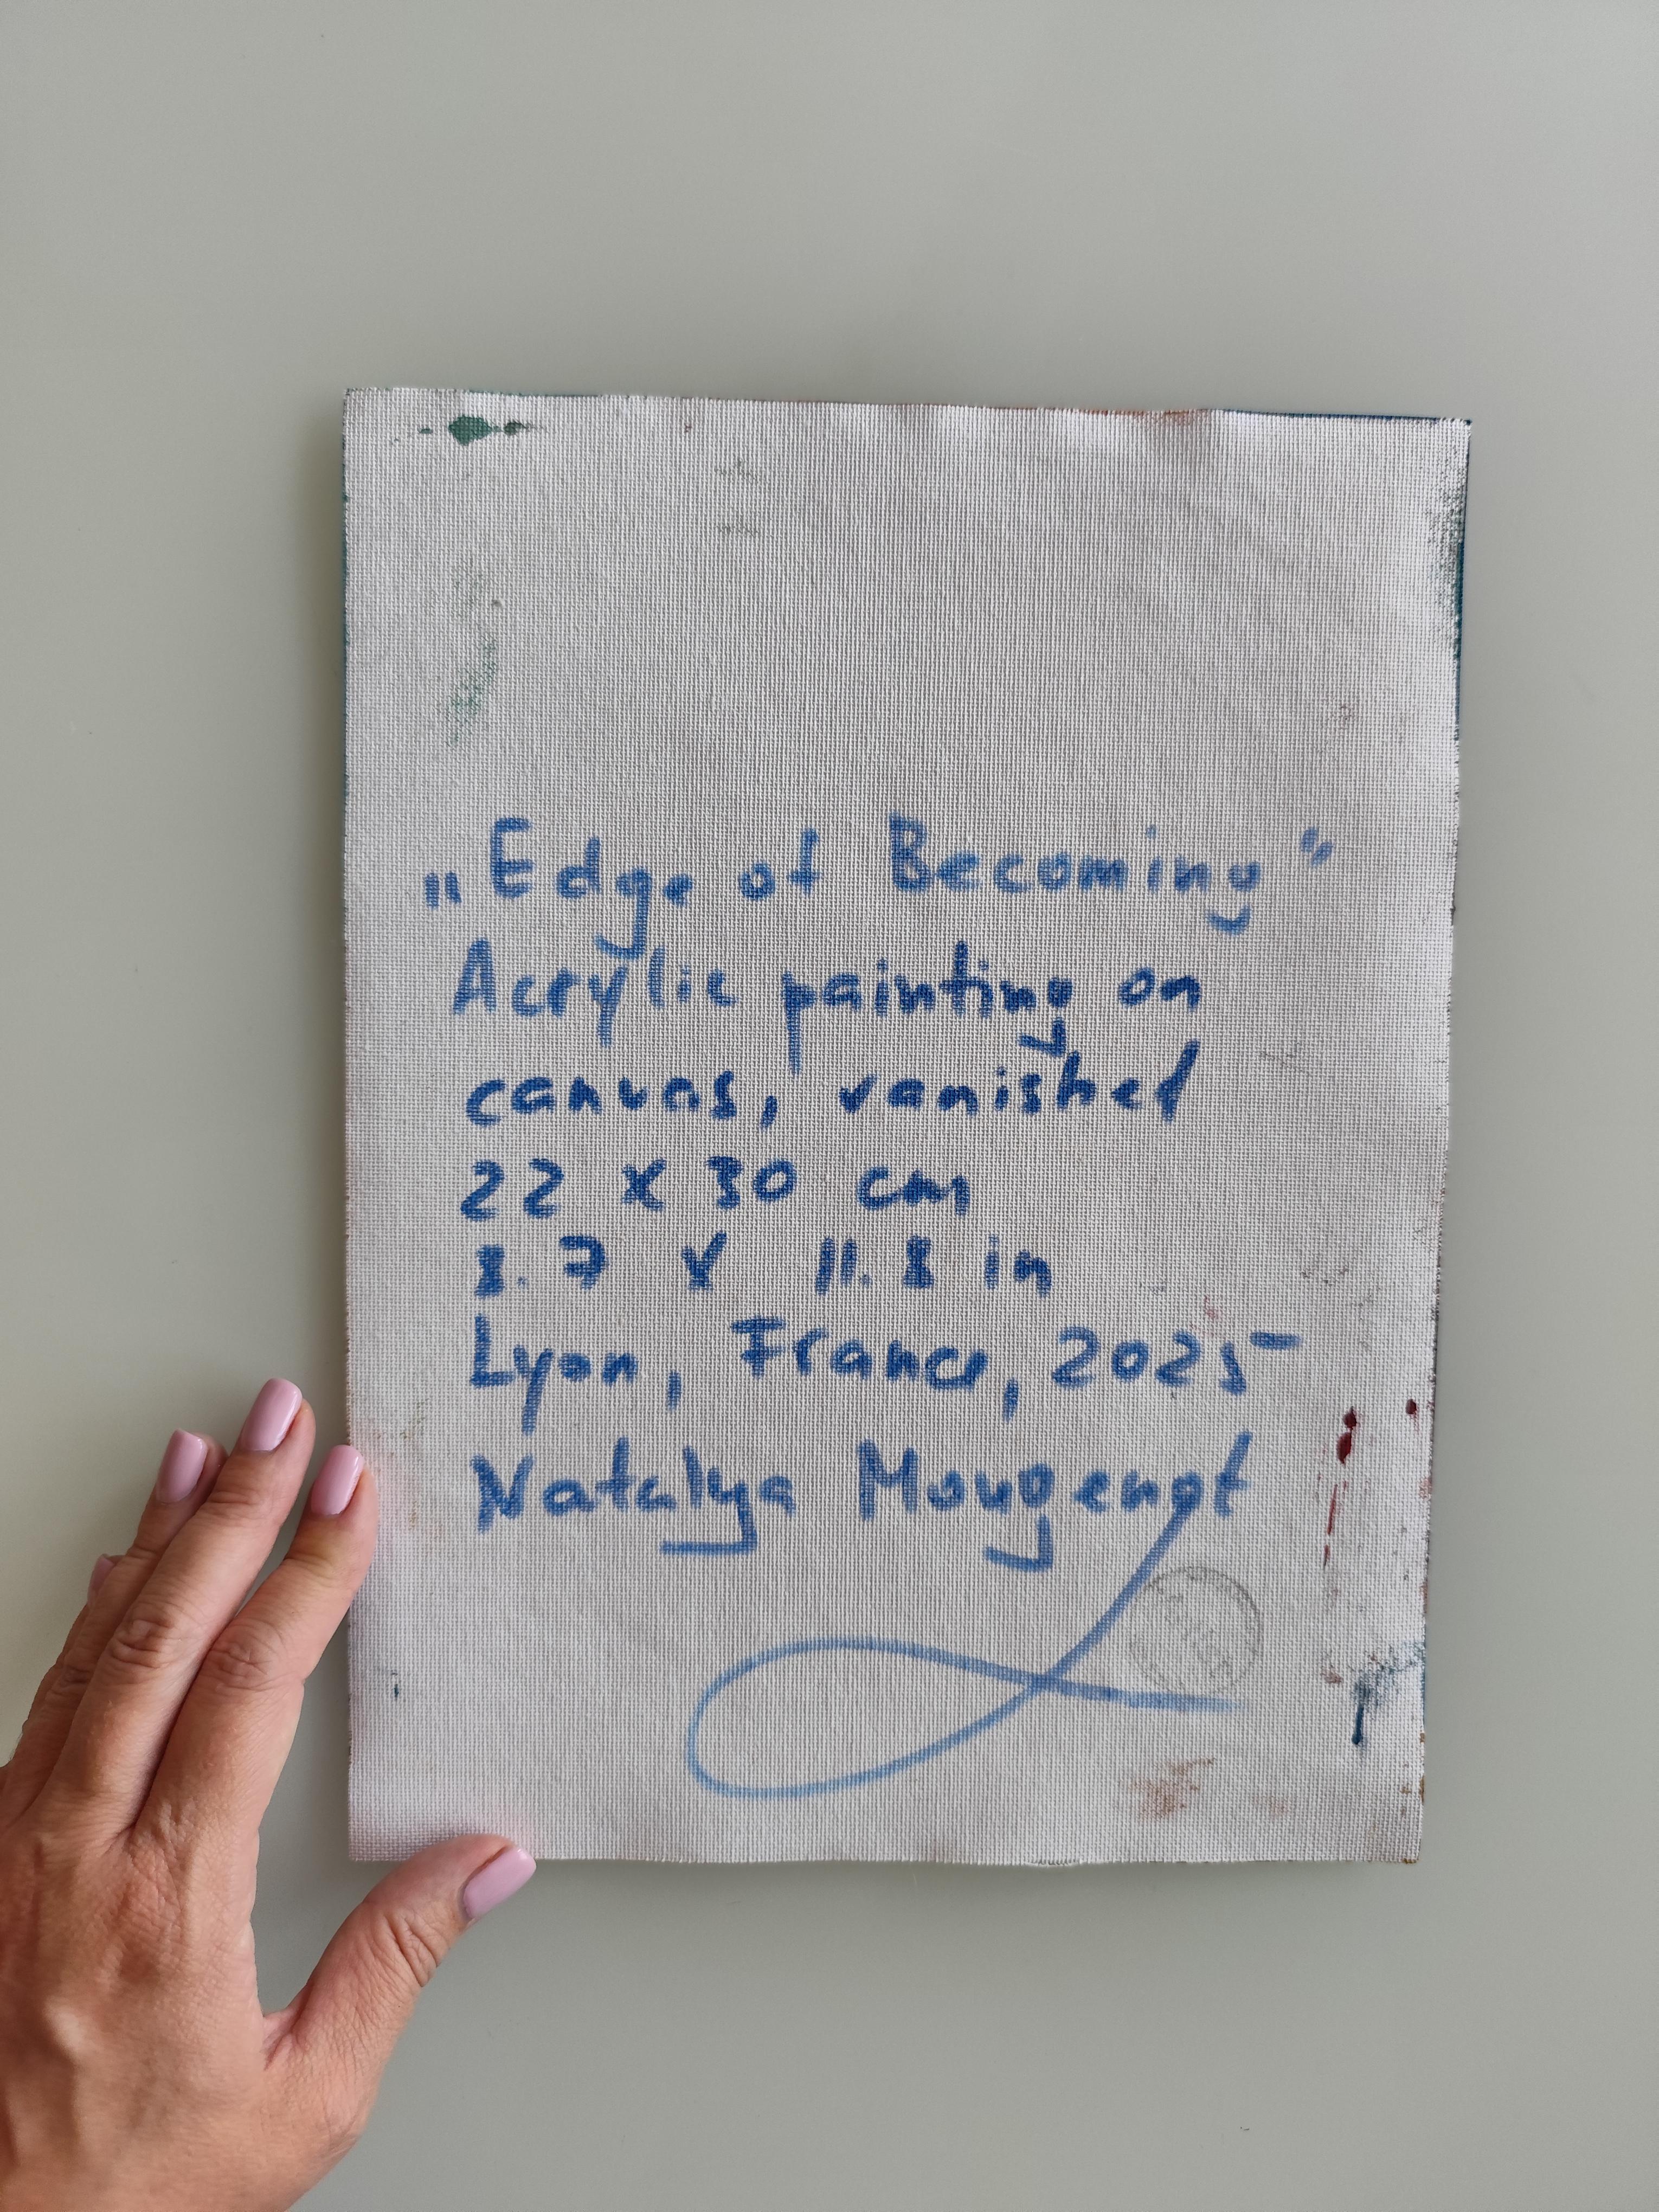 „Edge of Becoming"
Acrylic painting on
canvas, vanished
22 x 30 cm
8.7 x 11.8 in
Lyon, France, 2025
Natalya Mougenot